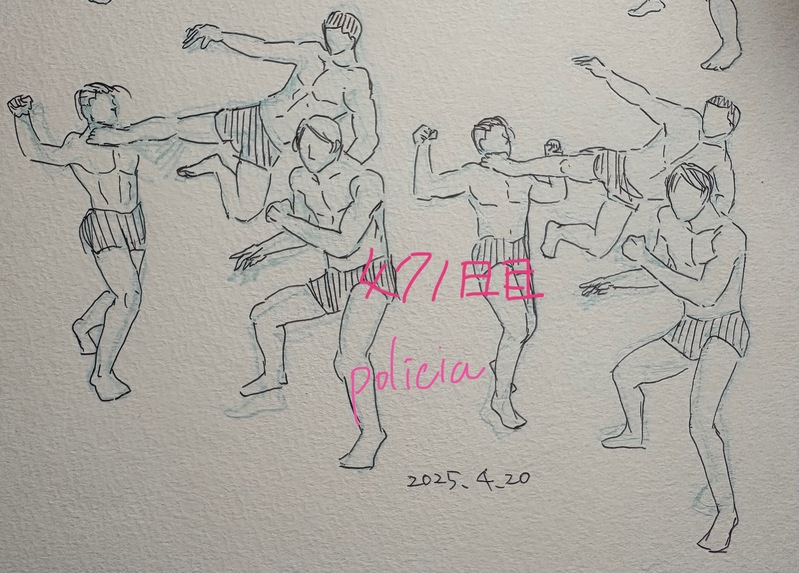 471日目
policia
2025.4.20